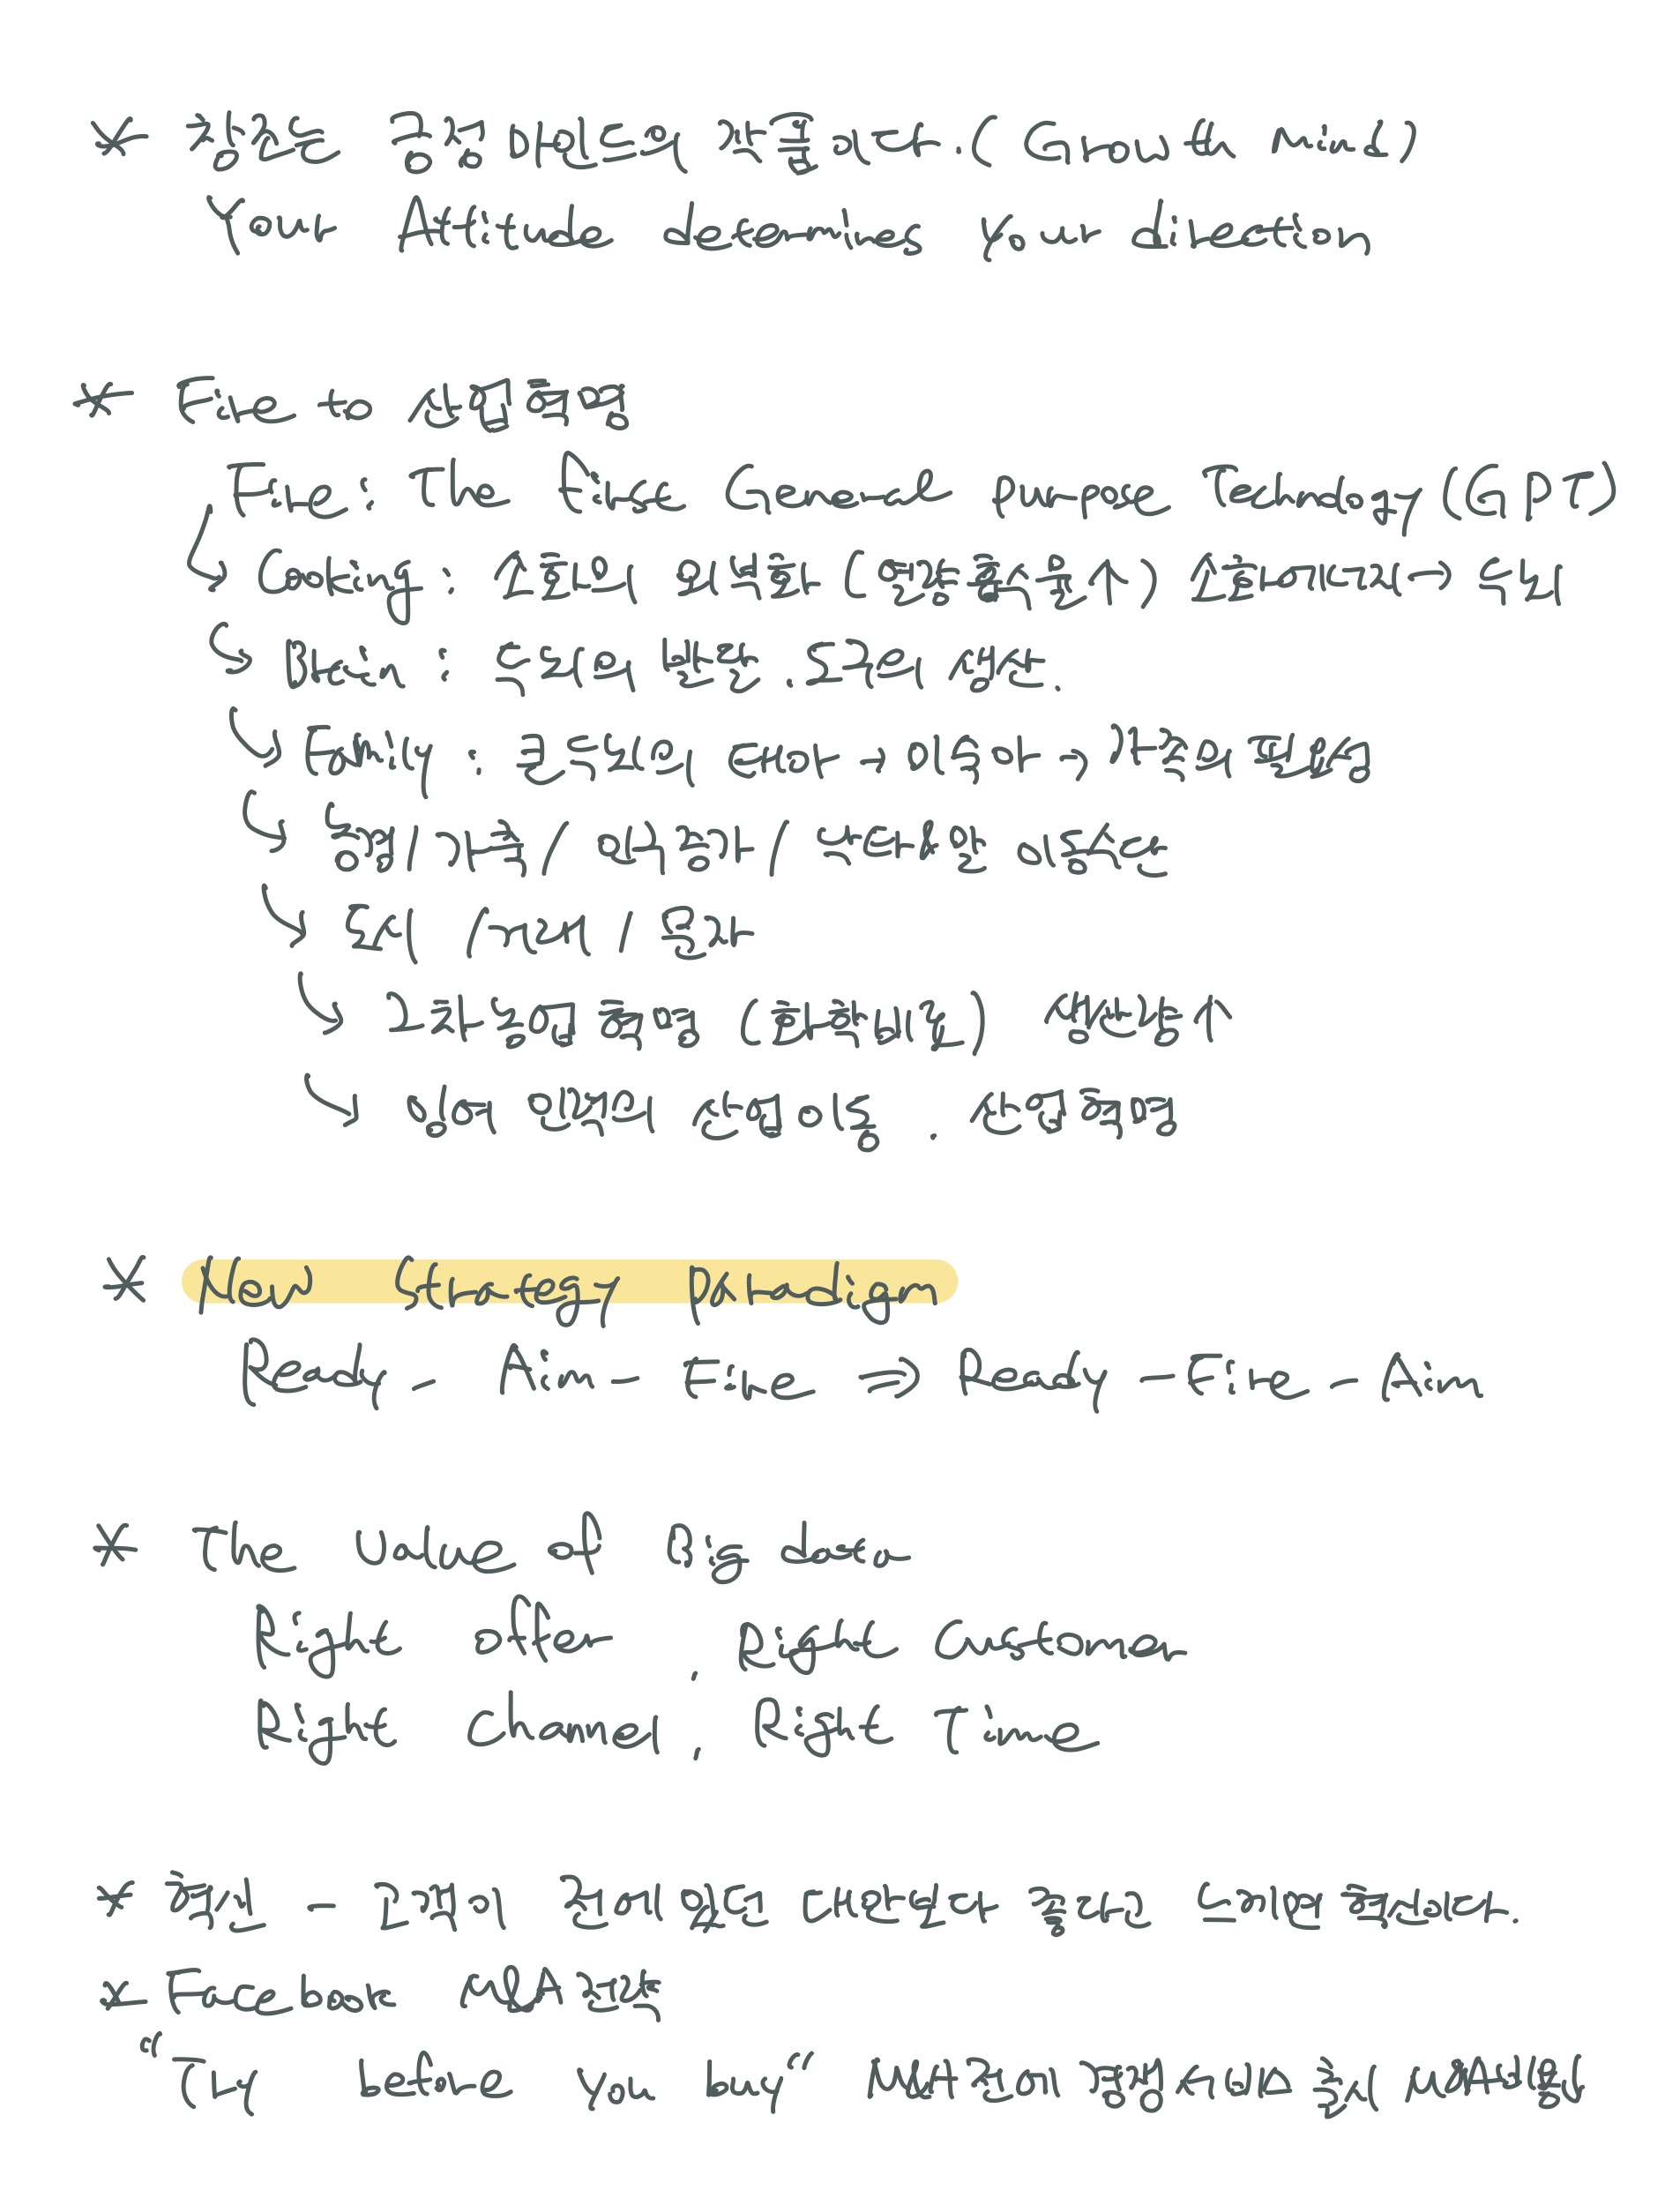 * 창조는 긍정마인드의 작품이다. (Growth Mind)
Your Attitude determines your direction
* Fire to 산업혁명
Fire: The first General purpose Technology (GPT)
↳ Cooking: 소화의 외부화 (영양흡수율↑) 소화에너지→두뇌
↳ Brain: 두뇌의 발달. 도구의 생산.
↳ Family: 큰두뇌의 태아→미숙아→가족의 필요성
↳ 농업/가축/인구증가/ 바다사람 이동수단
↳ 도시 /거래 / 문자
↳ 2차 농업혁명 (화학비료) 생산량↑
↳ 잉여 인력의 산업이동. 산업혁명
* New Strategy Paradigm
Ready - Aim - Fire ⇒ Ready - Fire - Aim
* The Value of Big data
Right offer, Right Customer
Right Channel, Right Time
* 혁신 - 고객이 전에 있던 대안보다 좋다고 느끼면 혁신이다.
* Facebook M&A전략
"Try before you buy" M&A전에 경쟁서비스 출시 M&A병행